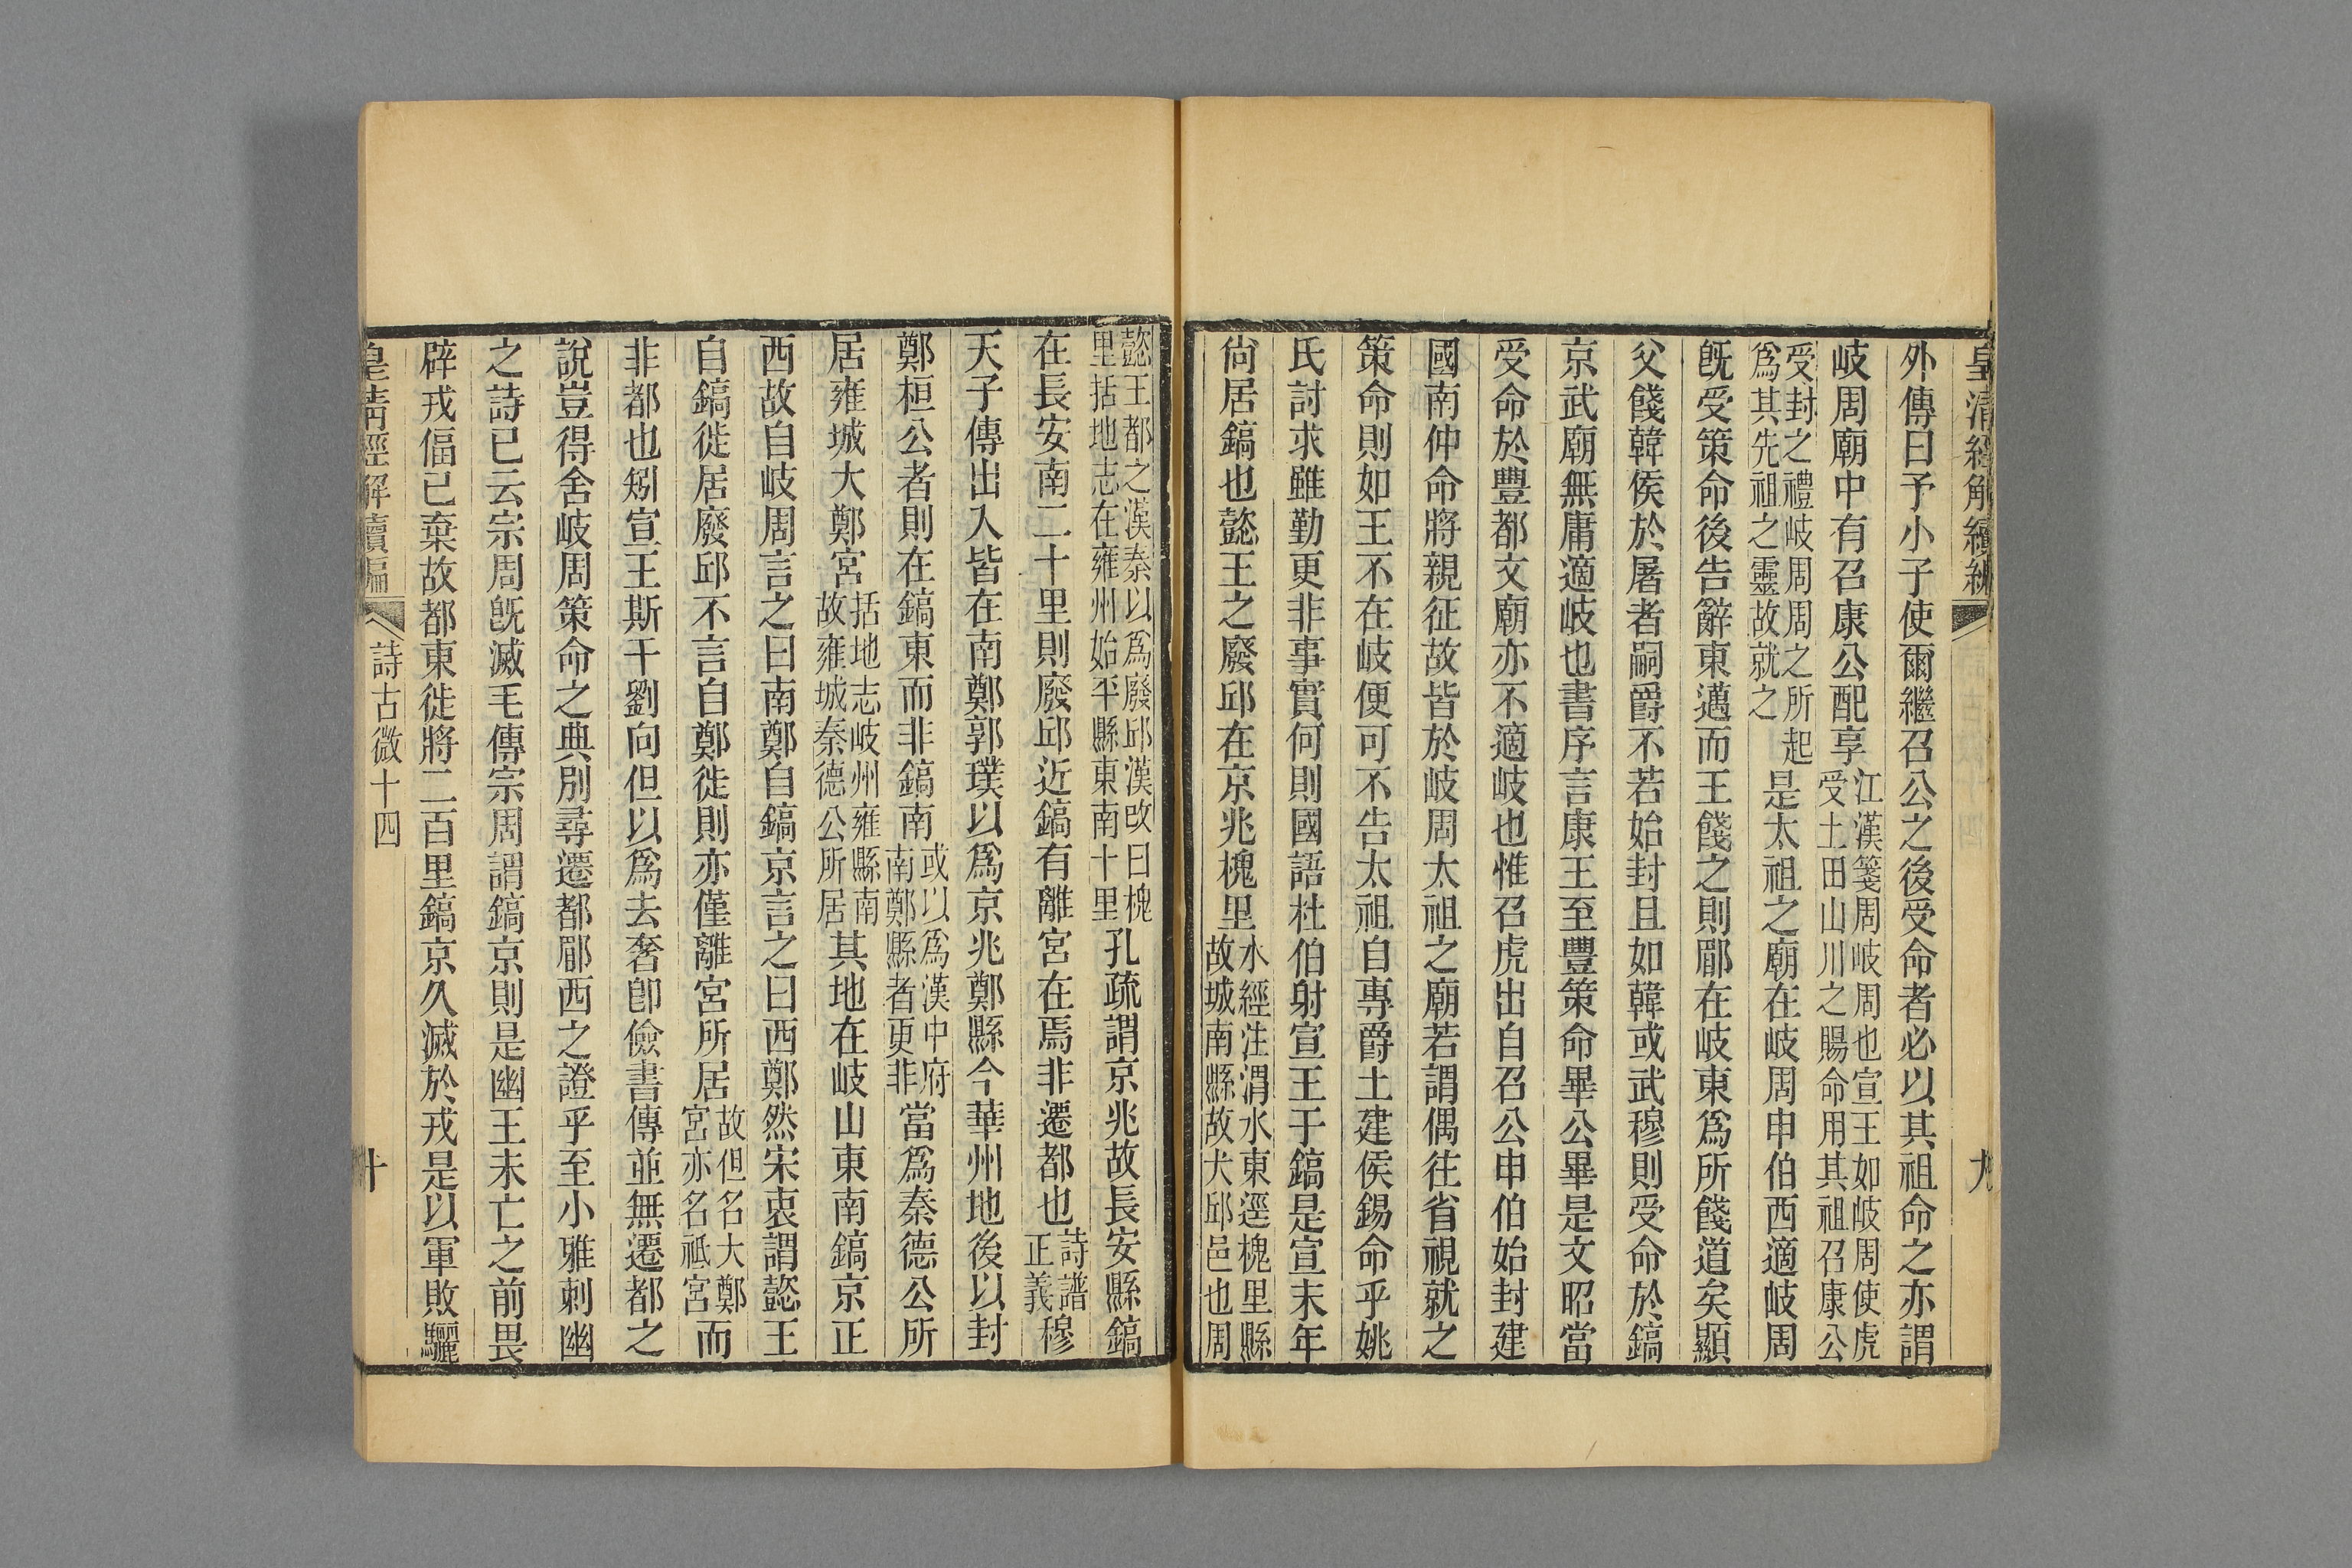 皇清經解續編
九
外傳曰予小子使爾繼召公之後受命者必以其祖命之亦謂
岐周廟中有召康公配享江漢箋周岐周也宣王如岐周使虎受土田山川之賜命用其祖召康公
受封之禮岐周周之所起爲其先祖之靈故就之是太祖之廟在岐周申伯西適岐周
旣受策命後告辭東邁而王餞之則郿在岐東爲所餞道矣顯
父餞韓侯於屠者嗣爵不若始封且如韓或武穆則受命於鎬
京武廟無庸適岐也書序言康王至豐策命畢公畢是文昭當
受命於豐都文廟亦不適岐也惟召虎出自召公申伯始封建
國南仲命將親征故皆於岐周太祖之廟若謂偶往省視就之
策命則如王不在岐便可不告太祖自專爵土建侯錫命乎姚
氏討求雖勤更非事實何則國語杜伯射宣王于鎬是宣末年
尙居鎬也懿王之廢邱在京兆槐里水經注渭水東逕槐里縣故城南縣故犬邱邑也周
懿王都之漢秦以爲廢邱漢改曰槐里括地志在雍州始平縣東南十里孔疏謂京兆故長安縣鎬
在長安南二十里則廢邱近鎬有離宮在焉非遷都也詩譜正義穆
天子傳出入皆在南鄭郭璞以爲京兆鄭縣今華州地後以封
鄭桓公者則在鎬東而非鎬南或以爲漢中府南鄭縣者更非當爲秦德公所
居雍城大鄭宮括地志岐州雍縣南故雍城秦德公所居其地在岐山東南鎬京正
西故自岐周言之曰南鄭自鎬京言之曰西鄭然宋衷謂懿王
自鎬徙居廢邱不言自鄭徙則亦僅離宮所居故但名大鄭宮亦名祗宮而
非都也矧宣王斯干劉向但以爲去奢卽儉書傳並無遷都之
說豈得舍岐周策命之典別尋遷都郿西之證乎至小雅刺幽
之詩已云宗周旣滅毛傳宗周謂鎬京則是幽王未亡之前畏
辟戎偪已棄故都東徙將二百里鎬京久滅於戎是以軍敗驪
皇清經解續編
詩古微十四
十